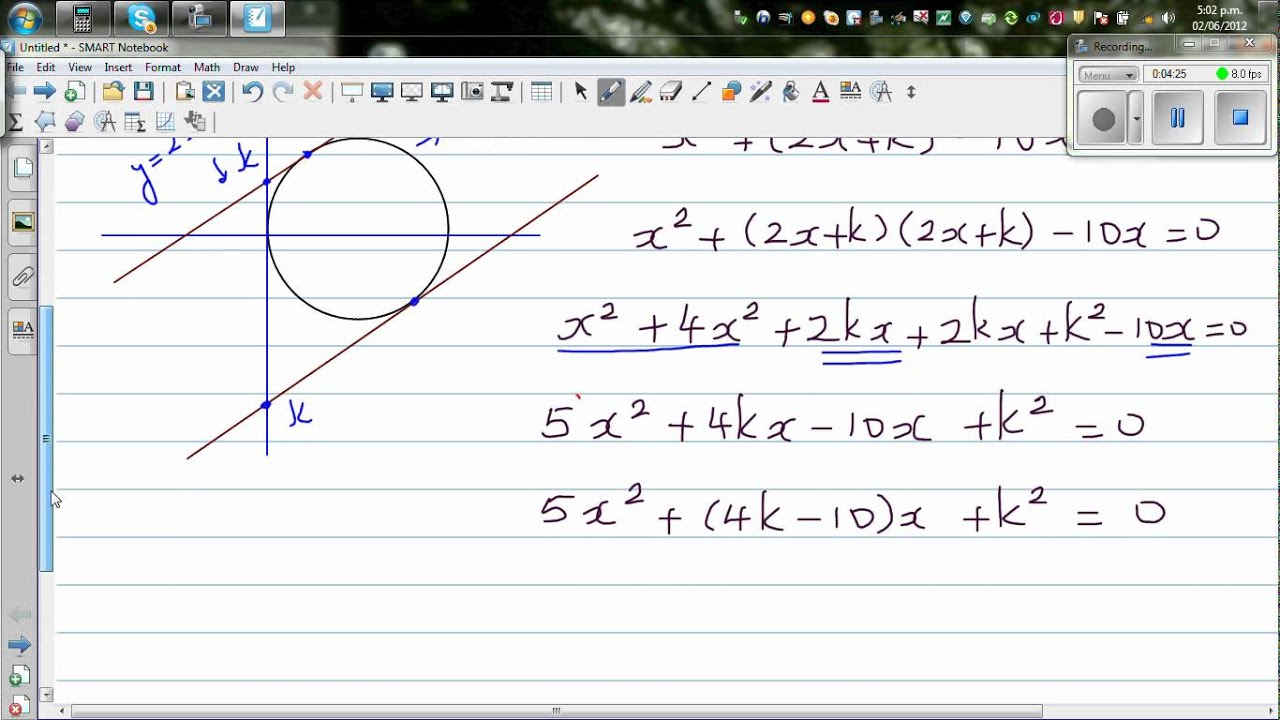 5:02 p.m.
02/06/2012
Untitled * - SMART Notebook
Recording...
File Edit View Insert Format Math Draw Help
Menu 0:04:25 8.0 fps
y=2
k
x² + (2x+k)² - 10x
x² + (2x+k)(2x+k) - 10x = 0
x² + 4x² + 2kx + 2kx + k² - 10x = 0
k
5x² + 4kx - 10x + k² = 0
5x² + (4k - 10)x + k² = 0